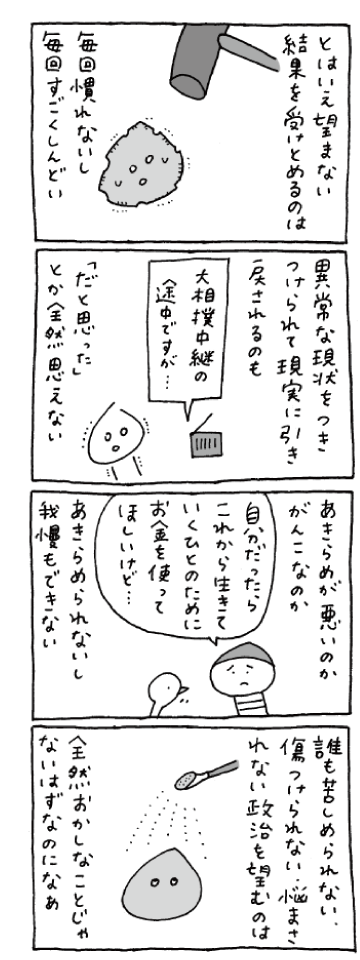 とはいえ望まない
結果を受けとめるのは
毎回慣れないし
毎回すごくしんどい
異常な現状をつき
つけられて現実に引き
戻されるのも
大相撲中継の
途中ですが…
「だと思った」
とか全然思えない
あきらめが悪いのか
がんこなのか
自分だったら
これから生きて
いくひとのために
お金を使って
ほしいけど…
あきらめられないし
我慢もできない
誰も苦しめられない、
傷つけられない、悩まさ
れない政治を望むのは
全然おかしなことじゃ
ないはずなのになあ